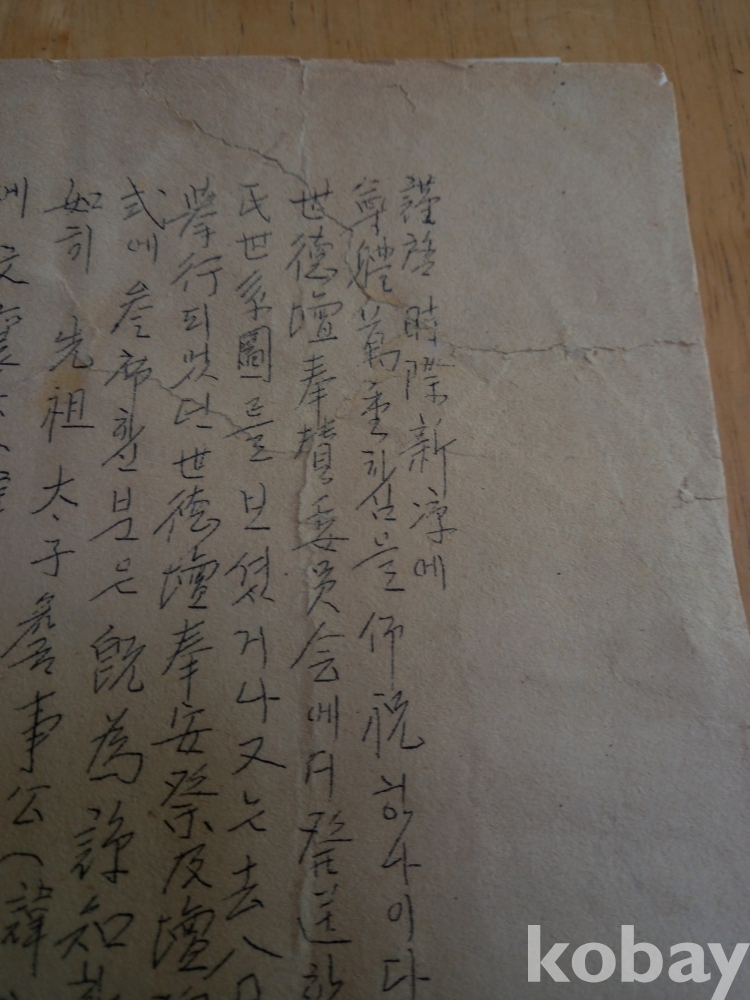 謹啓 時際新凉에
尊體萬重하심을 仰祝하나이다
世德壇奉賛委員会에서 發送한
氏世系圖를 보셨거나 又는 去八月
擧行되엿던 世德壇奉安祭及壇
式에 參席하신 분은 旣為諒知하
如히 先祖 太子詹事公(諱
에 文襄公
kobay